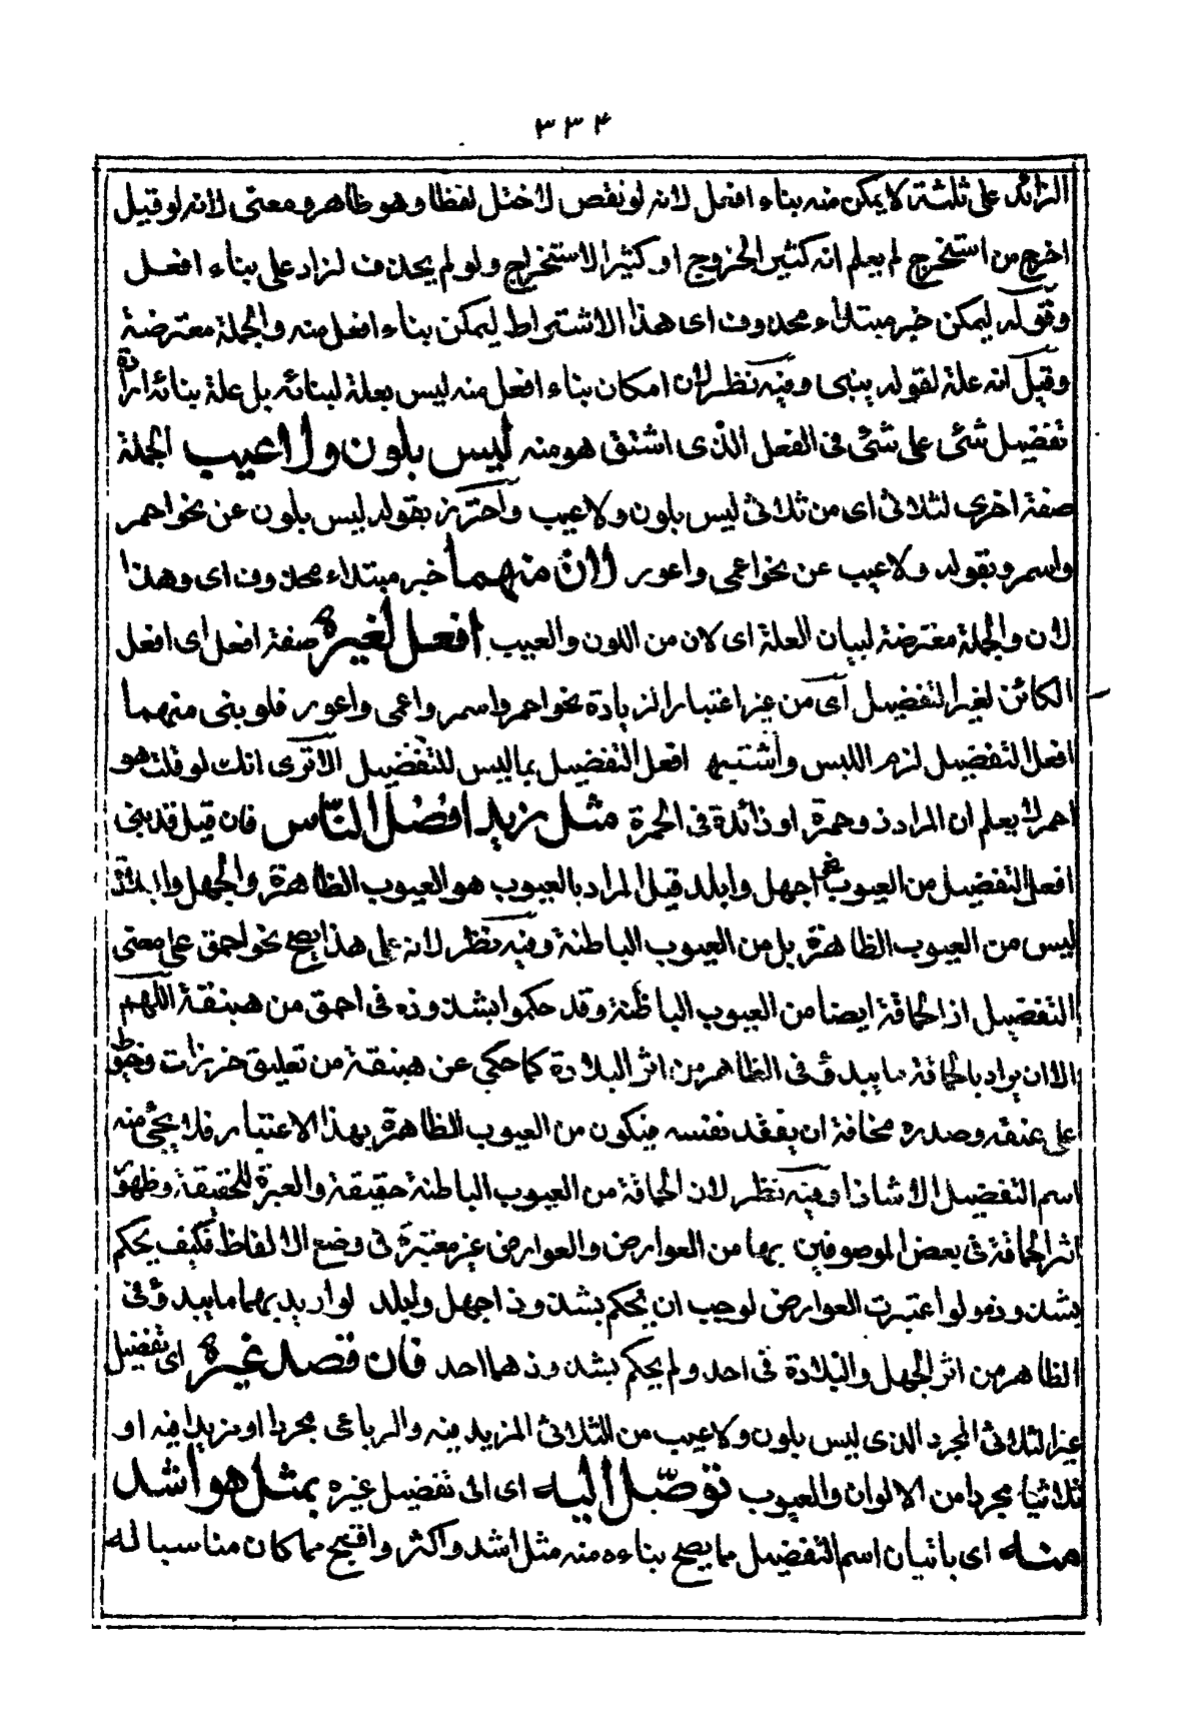 ٣٣٤
الزائد على ثلثة لا يمكن منه بناء افعل لانه لو نقص لاختل لفظا وهو ظاهر ومعنى لانه لو قيل
اخرج من استخرج لم يعلم انه كثير الخروج او كثير الاستخراج ولو لم يحذف لزاد على بناء افعل
وقوله ليمكن خبر مبتداء محذوف اى هذا الاشتراط ليمكن بناء افعل منه والجملة معترضة
وقيل انه علة لقوله يبنى وفيه نظر لان امكان بناء افعل منه ليس بعلة لبنائه بل علة بنائه ارادة
تفضيل شئ على شئ فى الفعل الذى اشتق هو منه ليس بلون ولا عيب الجملة
صفة اخرى لثلاثى اى من ثلاثى ليس بلون ولا عيب واحترز بقوله ليس بلون عن نحو احمر
واسمر وبقوله ولا عيب عن نحو اعمى واعور لان منهما خبر مبتداء محذوف اى وهذا
لان والجملة معترضة لبيان العلة اى لان من اللون والعيب افعل لغيره صفة افعل اى افعل
الكائن لغير التفضيل اى من غير اعتبار الزيادة نحو احمر واسمر واعمى واعور فلو بنى منهما
افعل التفضيل لزم اللبس واشتبه افعل التفضيل بما ليس للتفضيل الا ترى انك لو قلت هو
احمر لا يعلم ان المراد ذو حمرة او زائدة فى الحمرة مثل زيد افضل الناس فان قيل قد بنى
افعل التفضيل من العيوب نحو اجهل وابلد قيل المراد بالعيوب هو العيوب الظاهرة والجهل والبلادة
ليس من العيوب الظاهرة بل من العيوب الباطنة وفيه نظر لانه على هذا يصح نحو احمق على معنى
التفضيل اذ الحماقة ايضا من العيوب الباطنة وقد حكموا بشذوذه فى احمق من هبنقة اللهم
الا ان يراد بالحماقة ما يبدؤ فى الظاهر من اثر البلادة كما حكي عن هبنقة من تعليق خرزات وخيوط
على عنقه وصدره مخافة ان يفقد نفسه فيكون من العيوب الظاهرة بهذا الاعتبار فلا يجئ منه
اسم التفضيل الا شاذا وفيه نظر لان الحماقة من العيوب الباطنة حقيقة والعبرة للحقيقة وظهور
اثر الحماقة فى بعض الموصوفين بها من العوارض والعوارض غير معتبرة فى وضع الالفاظ فكيف يحكم
بشذوذه ولو اعتبرت العوارض لوجب ان يحكم بشذوذ اجهل وابلد لو اريد بهما ما يبدؤ فى
الظاهر من اثر الجهل والبلادة فى احد ولم يحكم بشذوذهما احد فان قصد غيره اى تفضيل
غير الثلاثى المجرد الذى ليس بلون ولا عيب من الثلاثى المزيد فيه والرباعى مجردا او مزيدا فيه او
ثلاثيا مجردا من الالوان والعيوب توصّل اليه اى الى تفضيل غيره بمثل هو اشد
منه اى باتيان اسم التفضيل مما يصح بناءه منه مثل اشد واكثر واقبح مما كان مناسبا له